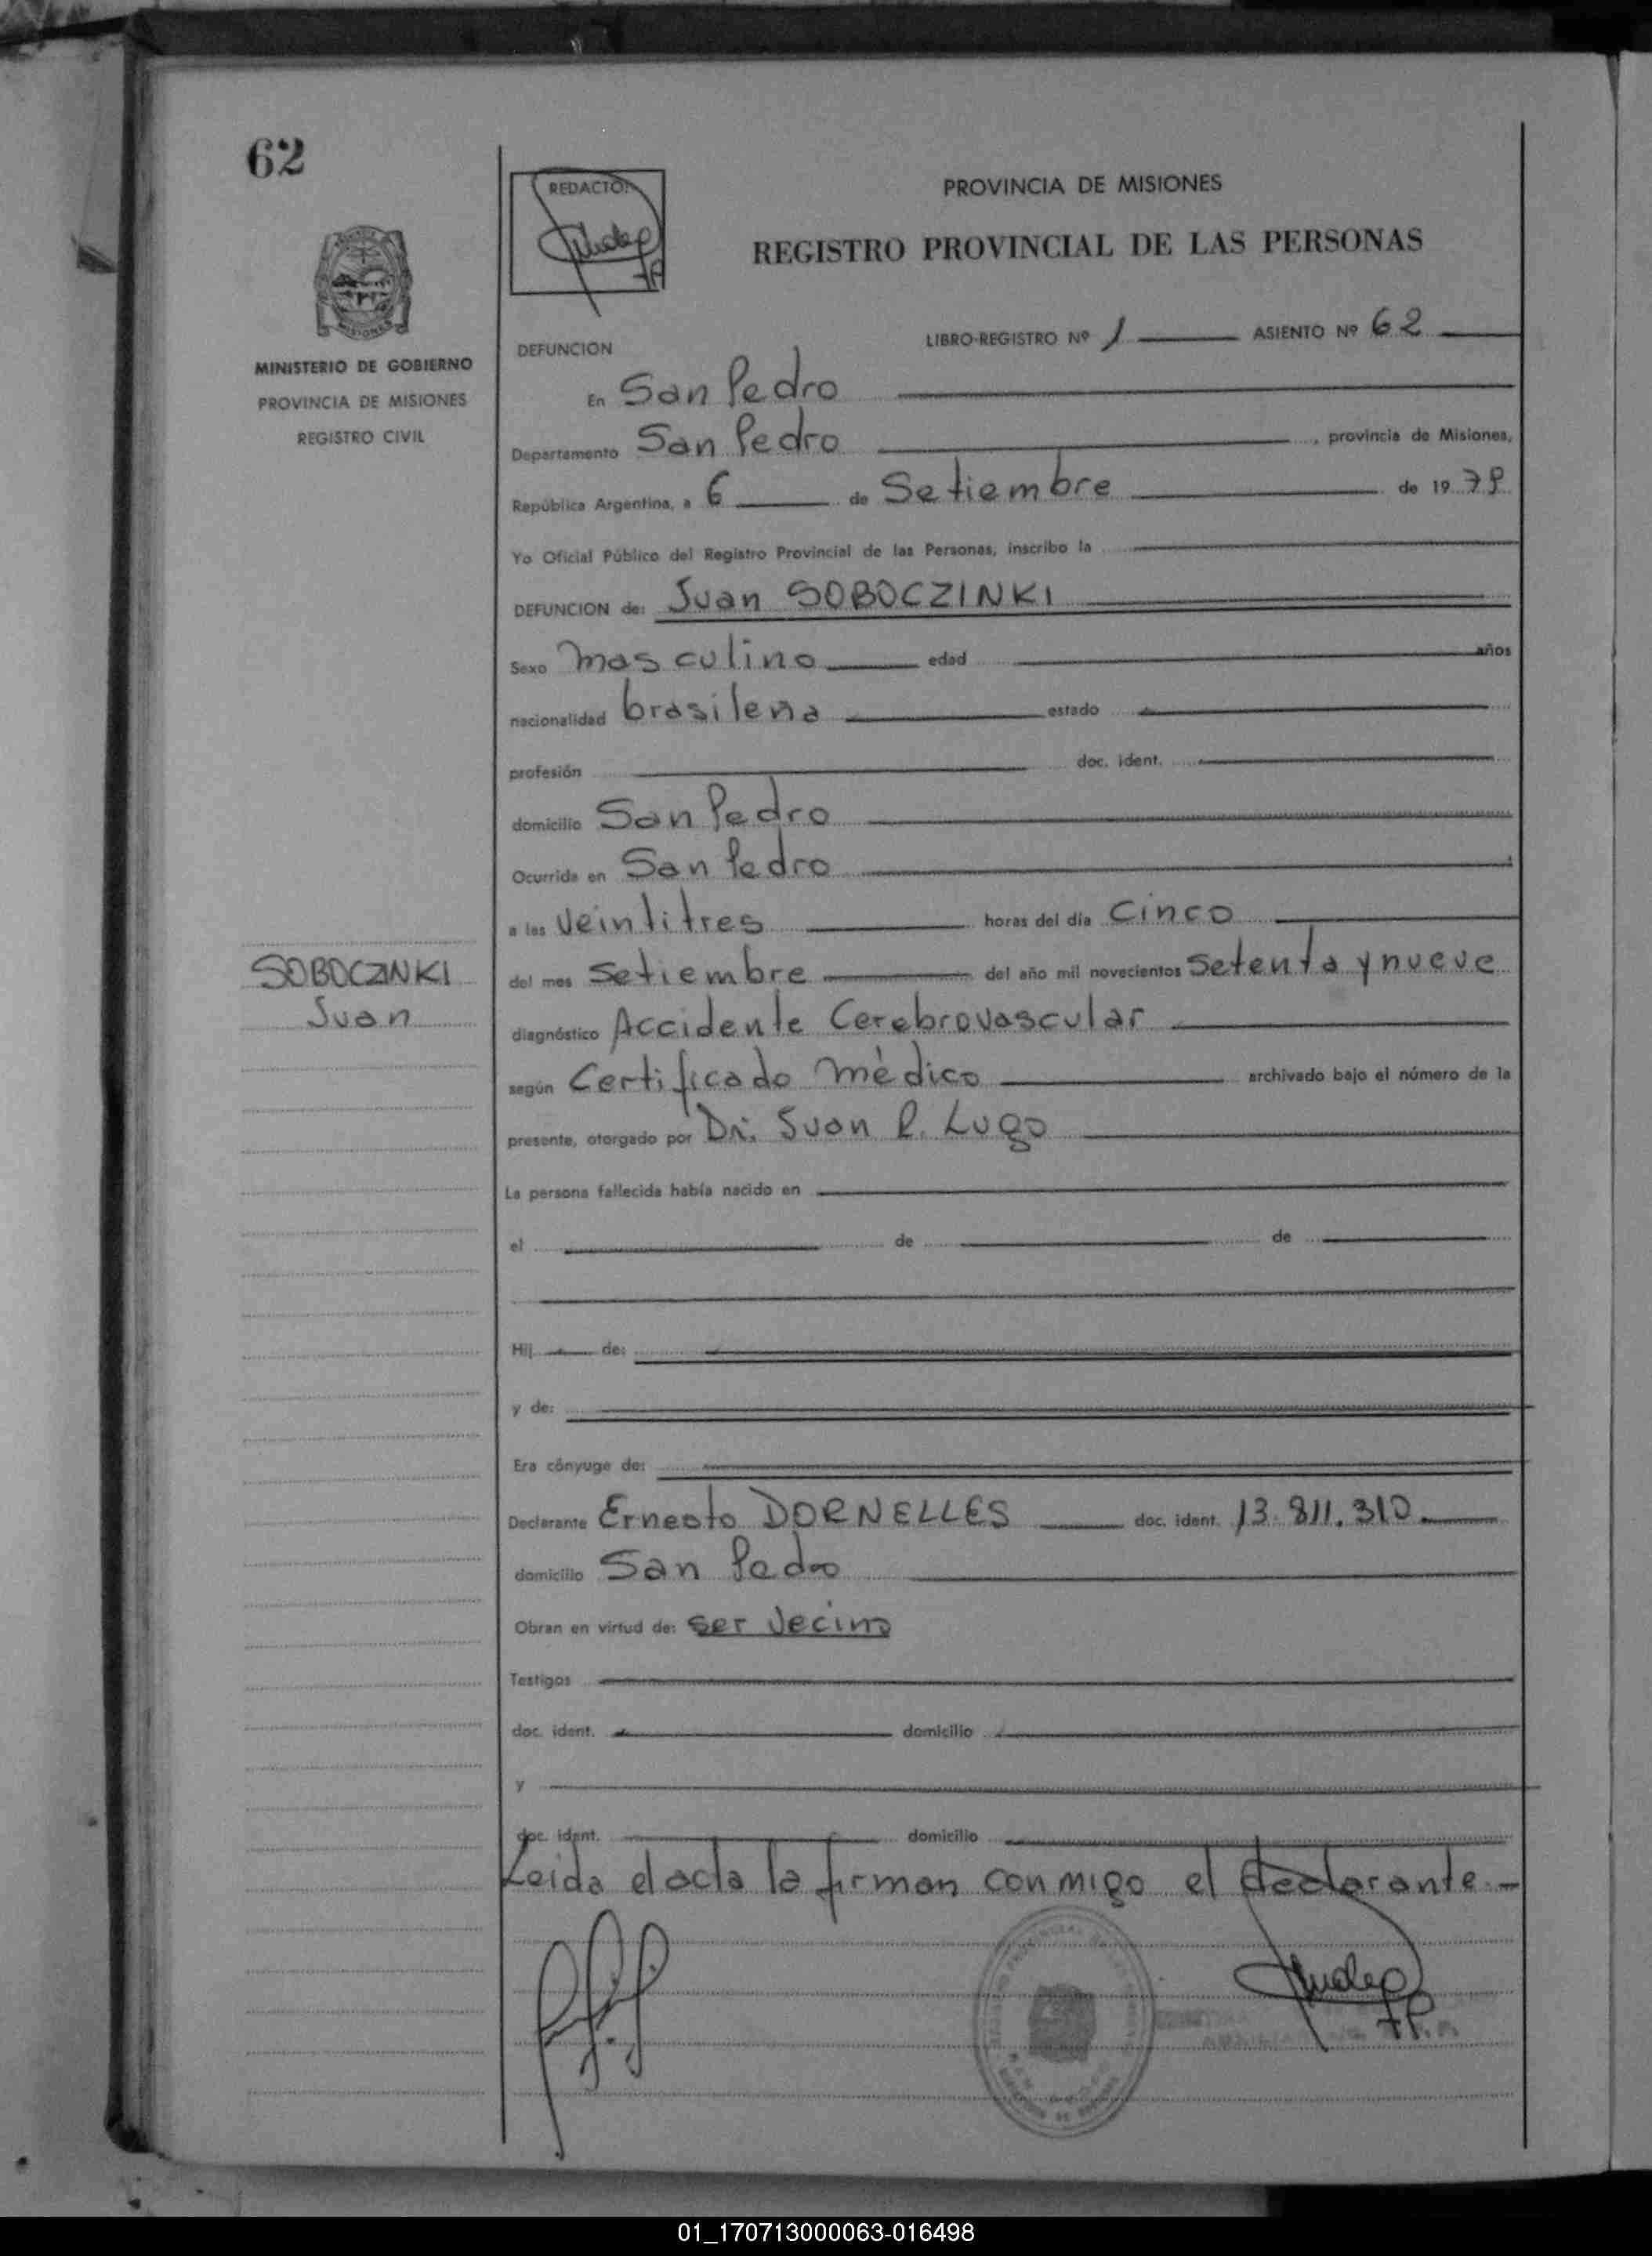 62
REDACTOR
PROVINCIA DE MISIONES
REGISTRO PROVINCIAL DE LAS PERSONAS
MISIONES
MINISTERIO DE GOBIERNO
PROVINCIA DE MISIONES
REGISTRO CIVIL
DEFUNCION LIBRO-REGISTRO Nº 1 ASIENTO Nº 62
En San Pedro
Departamento San Pedro, provincia de Misiones,
República Argentina, a 6 de Setiembre de 1979
Yo Oficial Público del Registro Provincial de las Personas, inscribo la
DEFUNCION de: Juan SOBOCZINKI
Sexo masculino edad años
nacionalidad brasileña estado
profesión doc. ident.
domicilio San Pedro
Ocurrida en San Pedro
a las veintitres horas del día cinco
SOBOCZINKI
Juan
del mes setiembre del año mil novecientos setenta y nueve
diagnóstico Accidente Cerebrovascular
según Certificado mèdico archivado bajo el número de la
presente, otorgado por Dr. Juan R. Lugo
La persona fallecida había nacido en
el de de
Hij de:
y de:
Era cónyuge de:
Declarante Ernesto DORNELLES doc. ident. 13.811.310
domicilio San Pedro
Obran en virtud de: ser vecino
Testigos
doc. ident. domicilio
y
doc. ident. domicilio
Leida el acta la firman conmigo el declarante.-
01_170713000063-016498